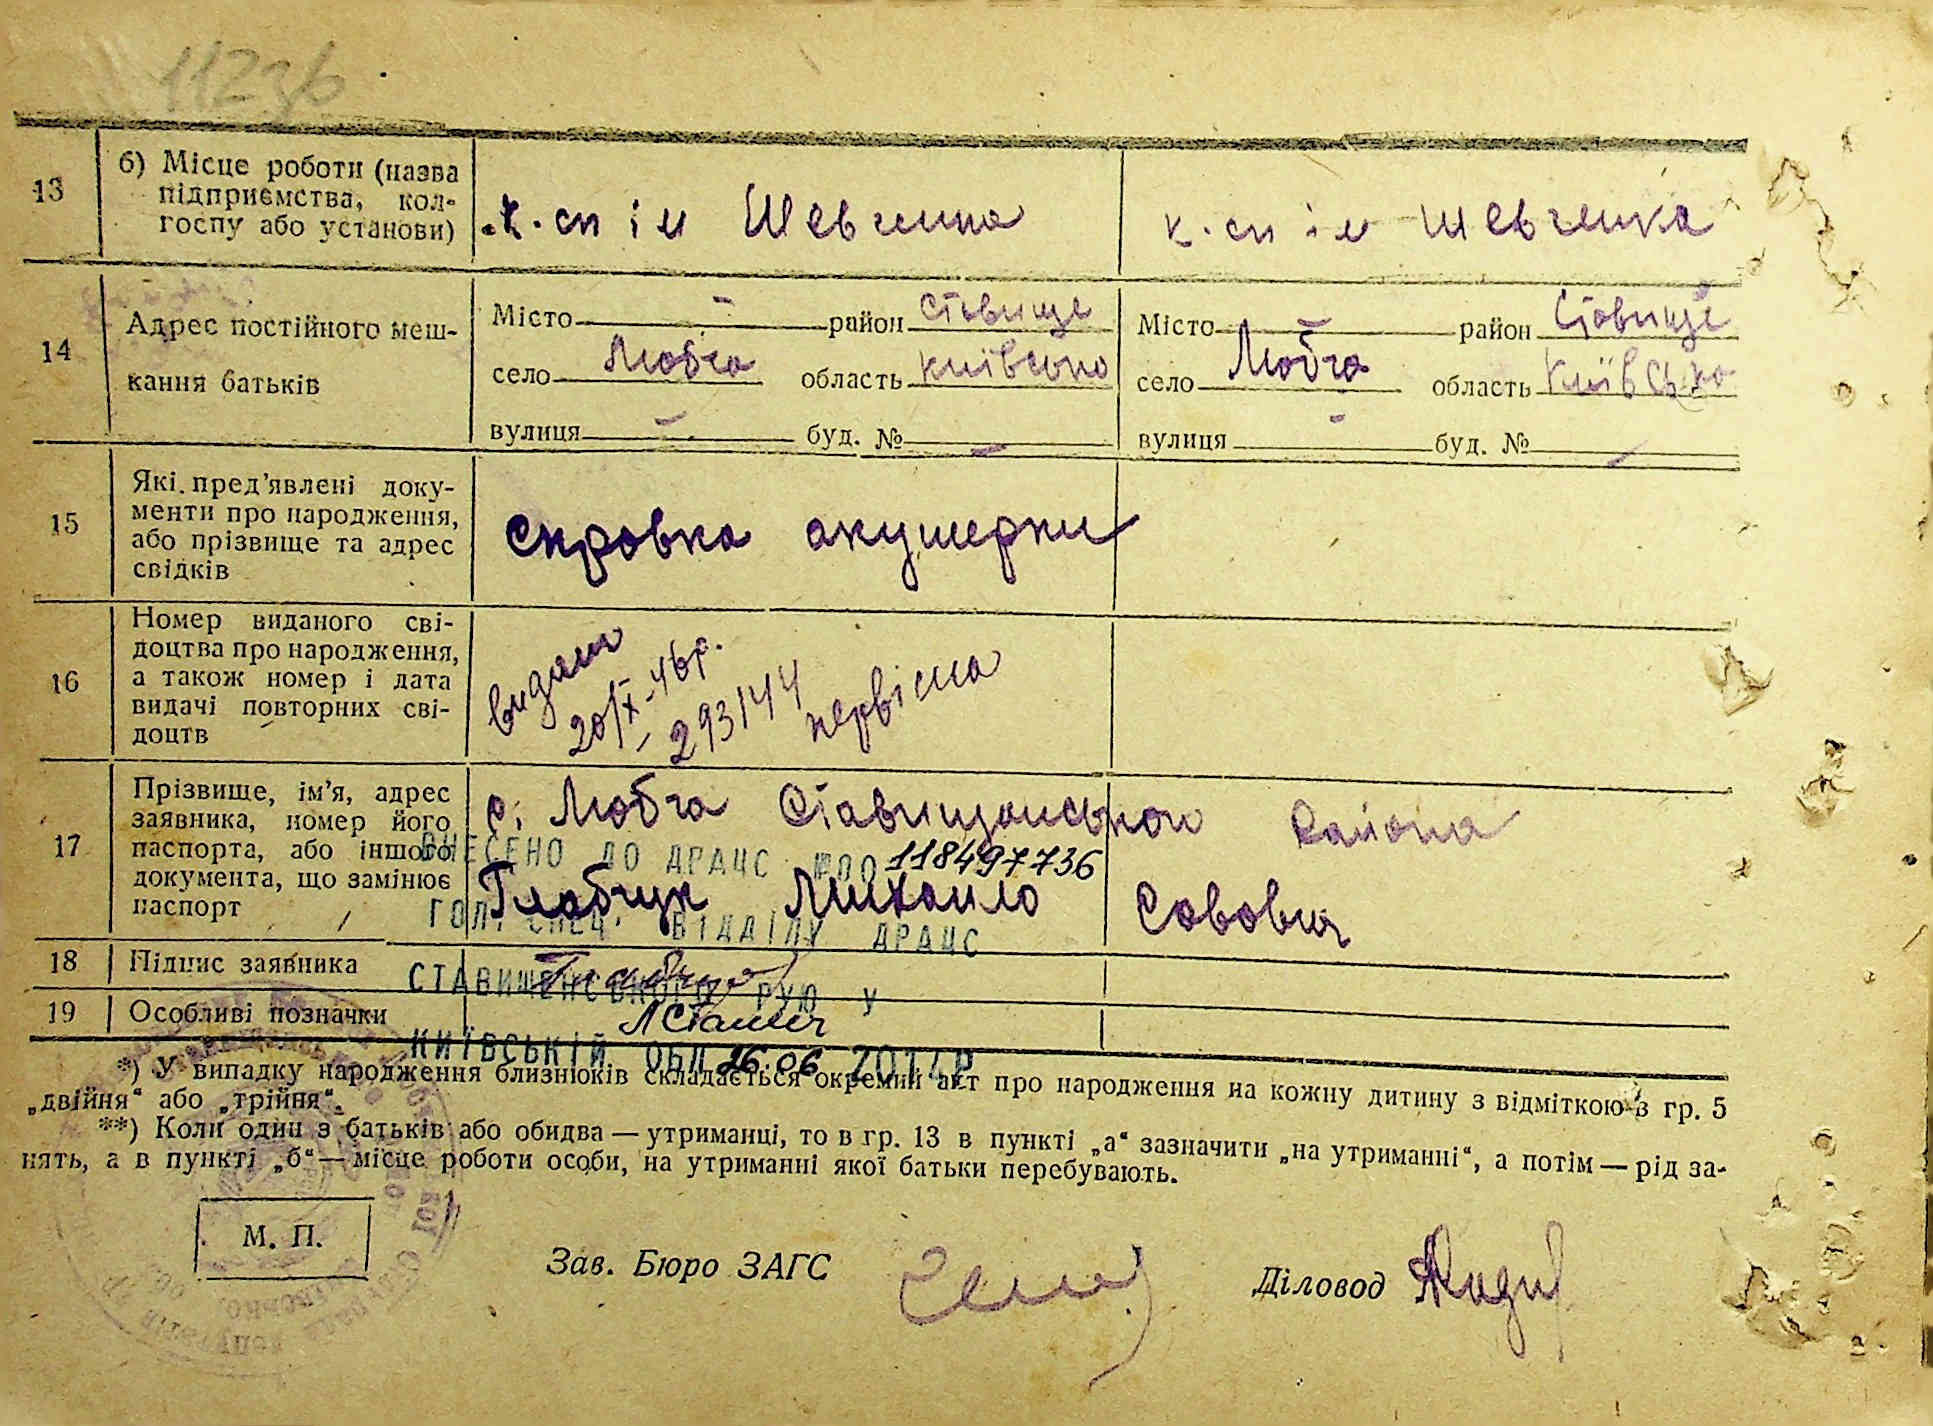 1123б
13
б) Місце роботи (назва
підприємства, кол-
госпу або установи)
к-сп ім Шевченка
к-сп ім Шевченка
14
Адрес постійного меш-
кання батьків
Місто — район Ставище
село Любча область Київська
вулиця — буд. № —
Місто — район Ставище
село Любча область Київська
вулиця — буд. № —
15
Які пред'явлені доку-
менти про народження,
або прізвище та адрес
свідків
Справка акушерки
16
Номер виданого сві-
доцтва про народження,
а також номер і дата
видачі повторних сві-
доцтв
видано
20/X-46р.
293144
первісна
17
Прізвище, ім'я, адрес
заявника, номер його
паспорта, або іншого
документа, що замінює
паспорт
с. Любча Ставищанського района
ВНЕСЕНО ДО ДРАЦС №00118497736
Глабчук Михаило Совович
ГОЛ. СПЕЦ. ВІДДІЛУ ДРАЦС
18
Підпис заявника
СТАВИЩЕНСЬКОГО РУЮ У
19
Особливі позначки
КИЇВСЬКІЙ ОБЛ 26.06 2014Р
*) У випадку народження близнюків складається окремий акт про народження на кожну дитину з відміткою в гр. 5
„двійня“ або „трійня“.
**) Коли один з батьків або обидва — утриманці, то в гр. 13 в пункті „а“ зазначити „на утриманні“, а потім — рід за-
нять, а в пункті „б“ — місце роботи особи, на утриманні якої батьки перебувають.
М. П.
Зав. Бюро ЗАГС
Діловод